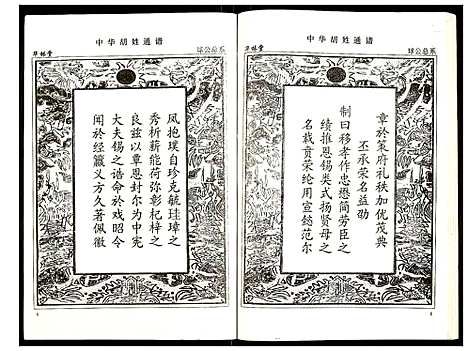 球公总系
中华胡姓通谱
章於策府礼秩加优茂典
丕承荣名益劭
制曰移孝作忠懋简劳臣之
绩推恩锡类式扬贤母之
名载贲荣纶用宣懿范尔
中华胡姓通谱
草椿堂
风抱璞自珍克毓珪璋之
秀析薪能荷弥彰杞梓之
良兹以覃恩封尔为中宪
大夫锡之诰命於戏昭令
闻於经籯义方久著佩徽